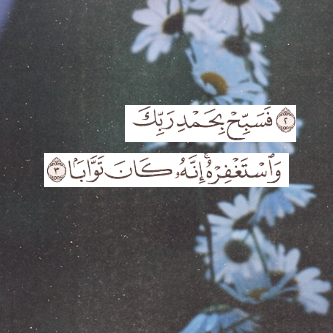 ۝٢ فَسَبِّحْ بِحَمْدِ رَبِّكَ
وَٱسْتَغْفِرْهُ ۚ إِنَّهُۥ كَانَ تَوَّابًۢا ۝٣